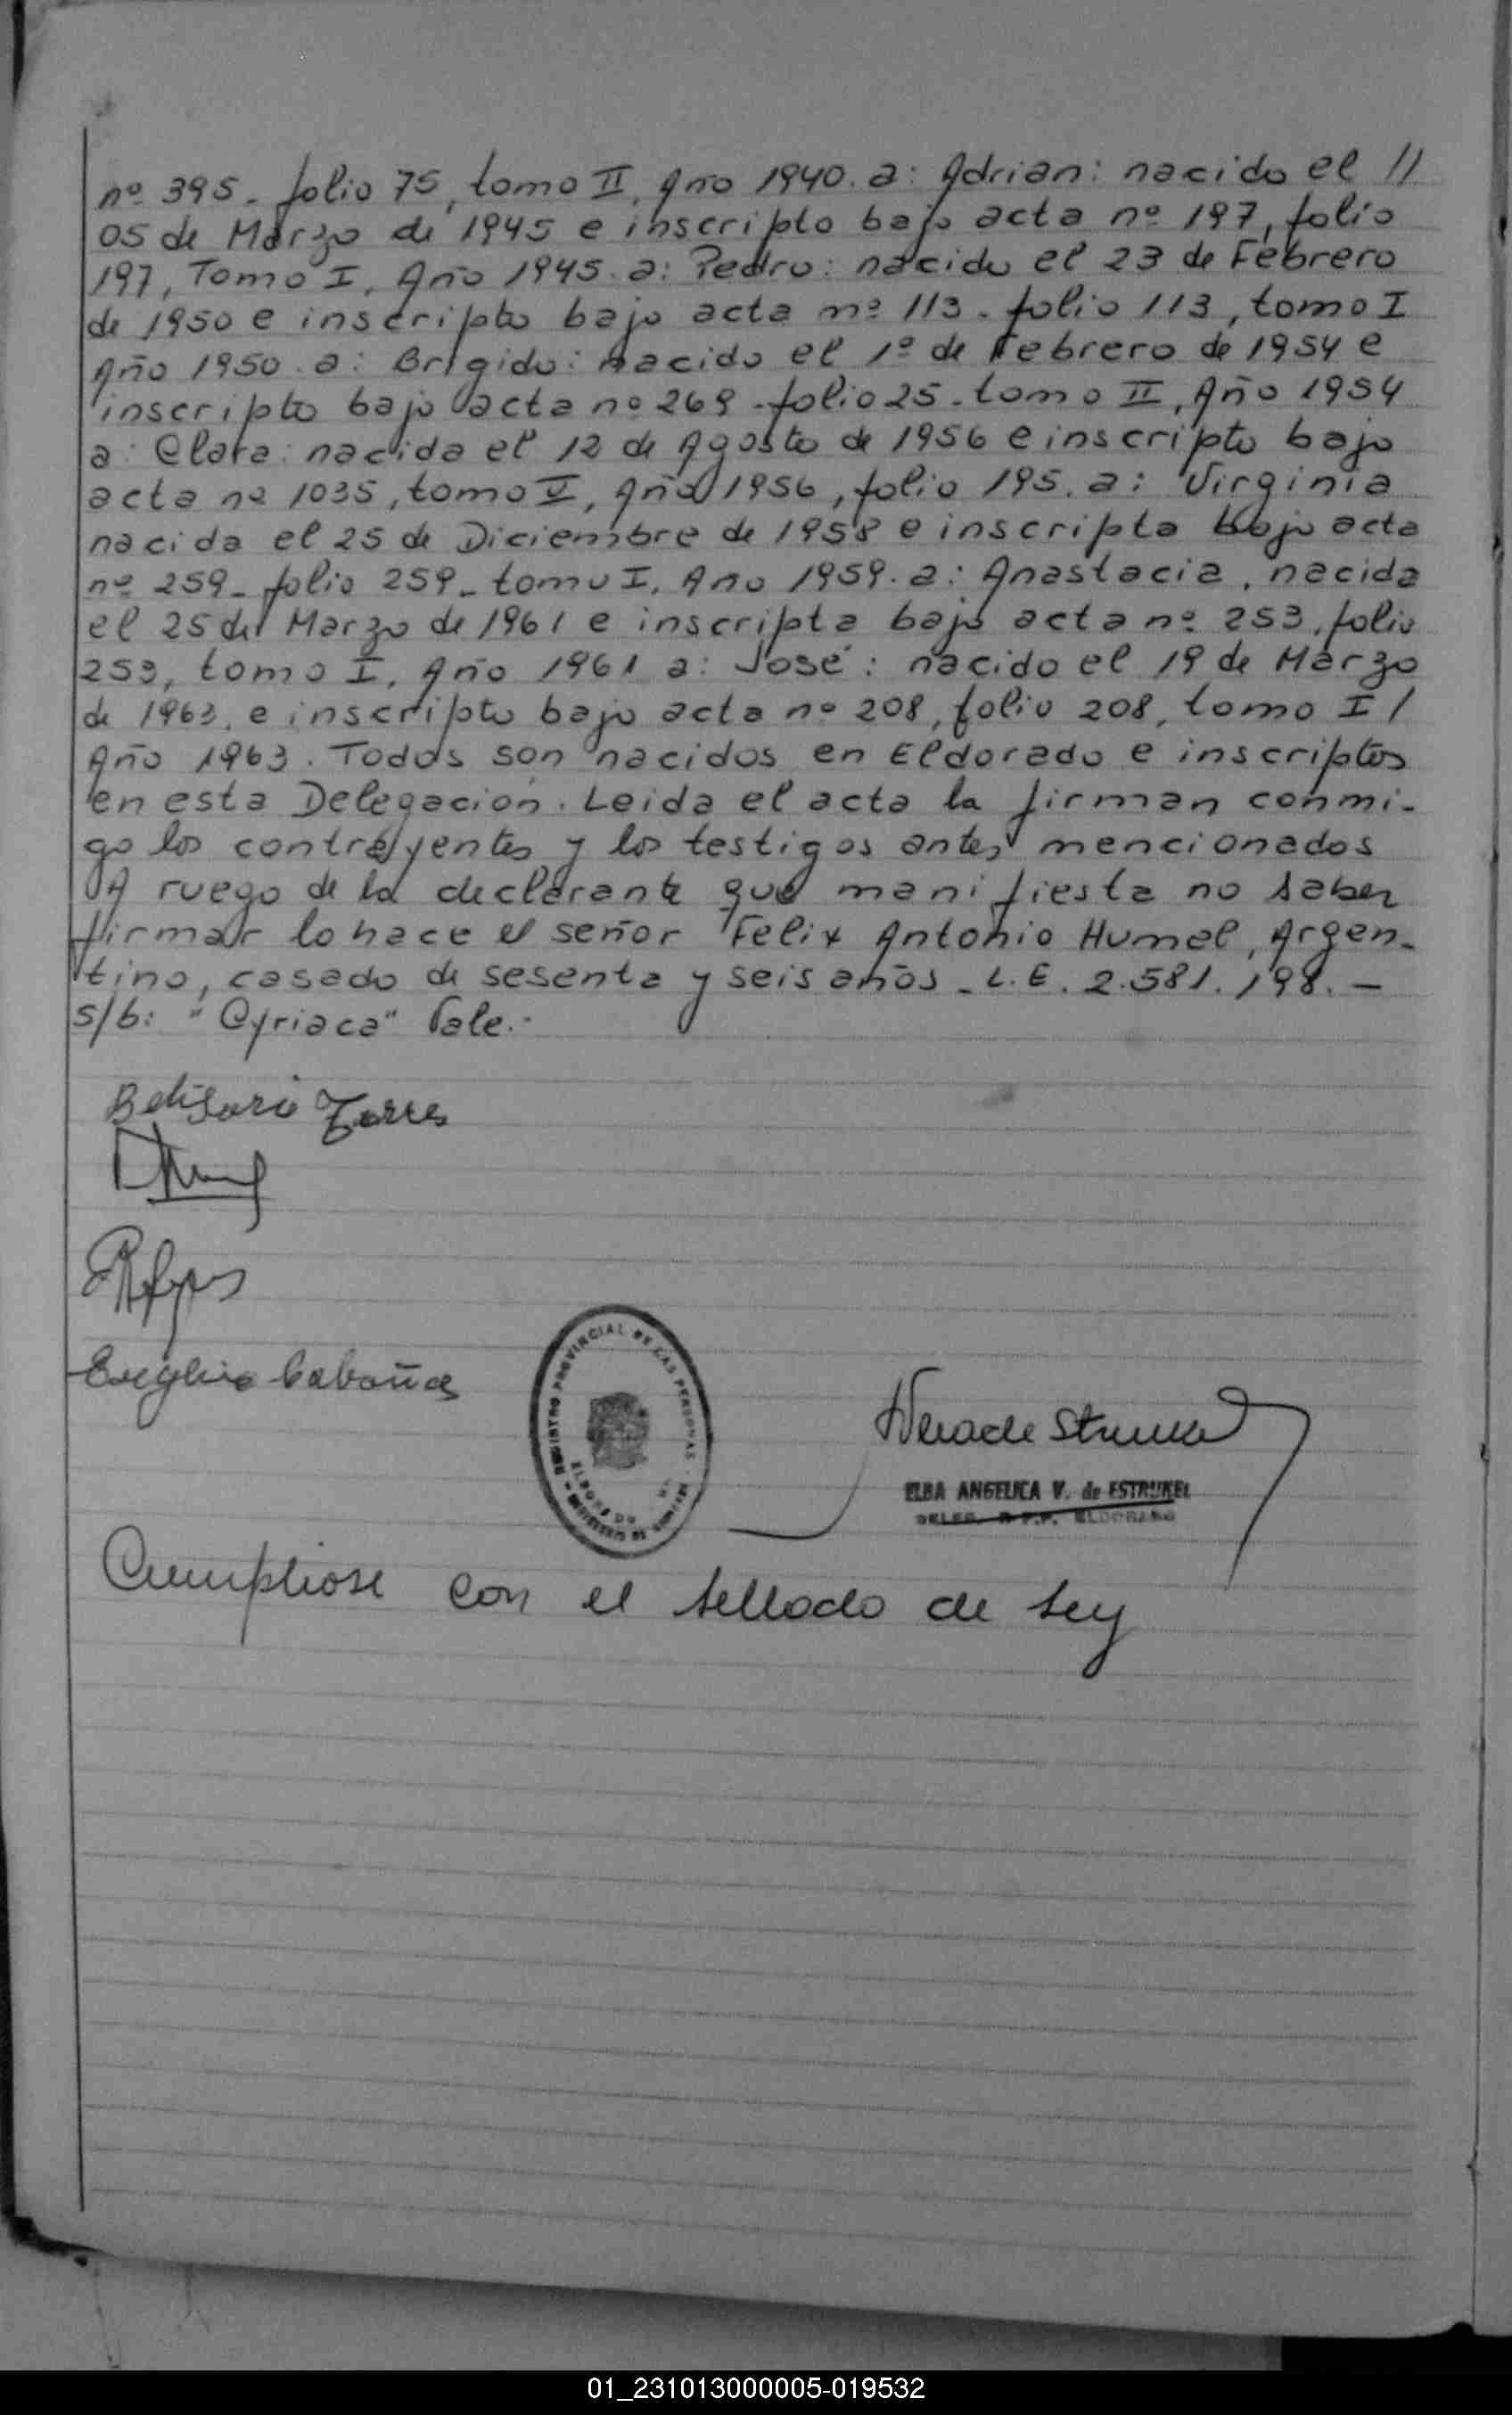 nº 395. folio 75, tomo II, Año 1940. a: Adrian: nacido el //
05 de Marzo de 1945 e inscripto bajo acta nº 197, folio
197, Tomo I, Año 1945. a: Pedro: nacido el 23 de Febrero
de 1950 e inscripto bajo acta nº 113. folio 113, tomo I
Año 1950. a: Brigido: nacido el 1º de Febrero de 1954 e
inscripto bajo acta nº 269. folio 25. tomo II, Año 1954
a: Clara: nacida el 12 de Agosto de 1956 e inscripto bajo
acta nº 1035, tomo V, Año 1956, folio 195. a: Virginia
nacida el 25 de Diciembre de 1958 e inscripta bajo acta
nº 259_ folio 259_ tomo I, Año 1959. a: Anastacia, nacida
el 25 de Marzo de 1961 e inscripta bajo acta nº 253, folio
253, tomo I, Año 1961 a: José: nacido el 19 de Marzo
de 1963, e inscripto bajo acta nº 208, folio 208, tomo I /
Año 1963. Todos son nacidos en Eldorado e inscriptos
en esta Delegación. Leida el acta la firman conmi-
go los contrayentes y los testigos antes mencionados
A ruego de la declarante que manifiesta no saber
firmar lo hace el señor Felix Antonio Humel, Argen-
tino, casado de sesenta y seis años_ L.E. 2.581.198.—
S/b: "Cyriaca" Vale.-
Belisario Torres
Cabañas
REGISTRO PROVINCIAL DE LAS PERSONAS
ELDORADO
ELBA ANGELICA V. de ESTRUKEL
DELEG. R.P.P. ELDORADO
Cumpliose con el sellado de ley
01_231013000005-019532